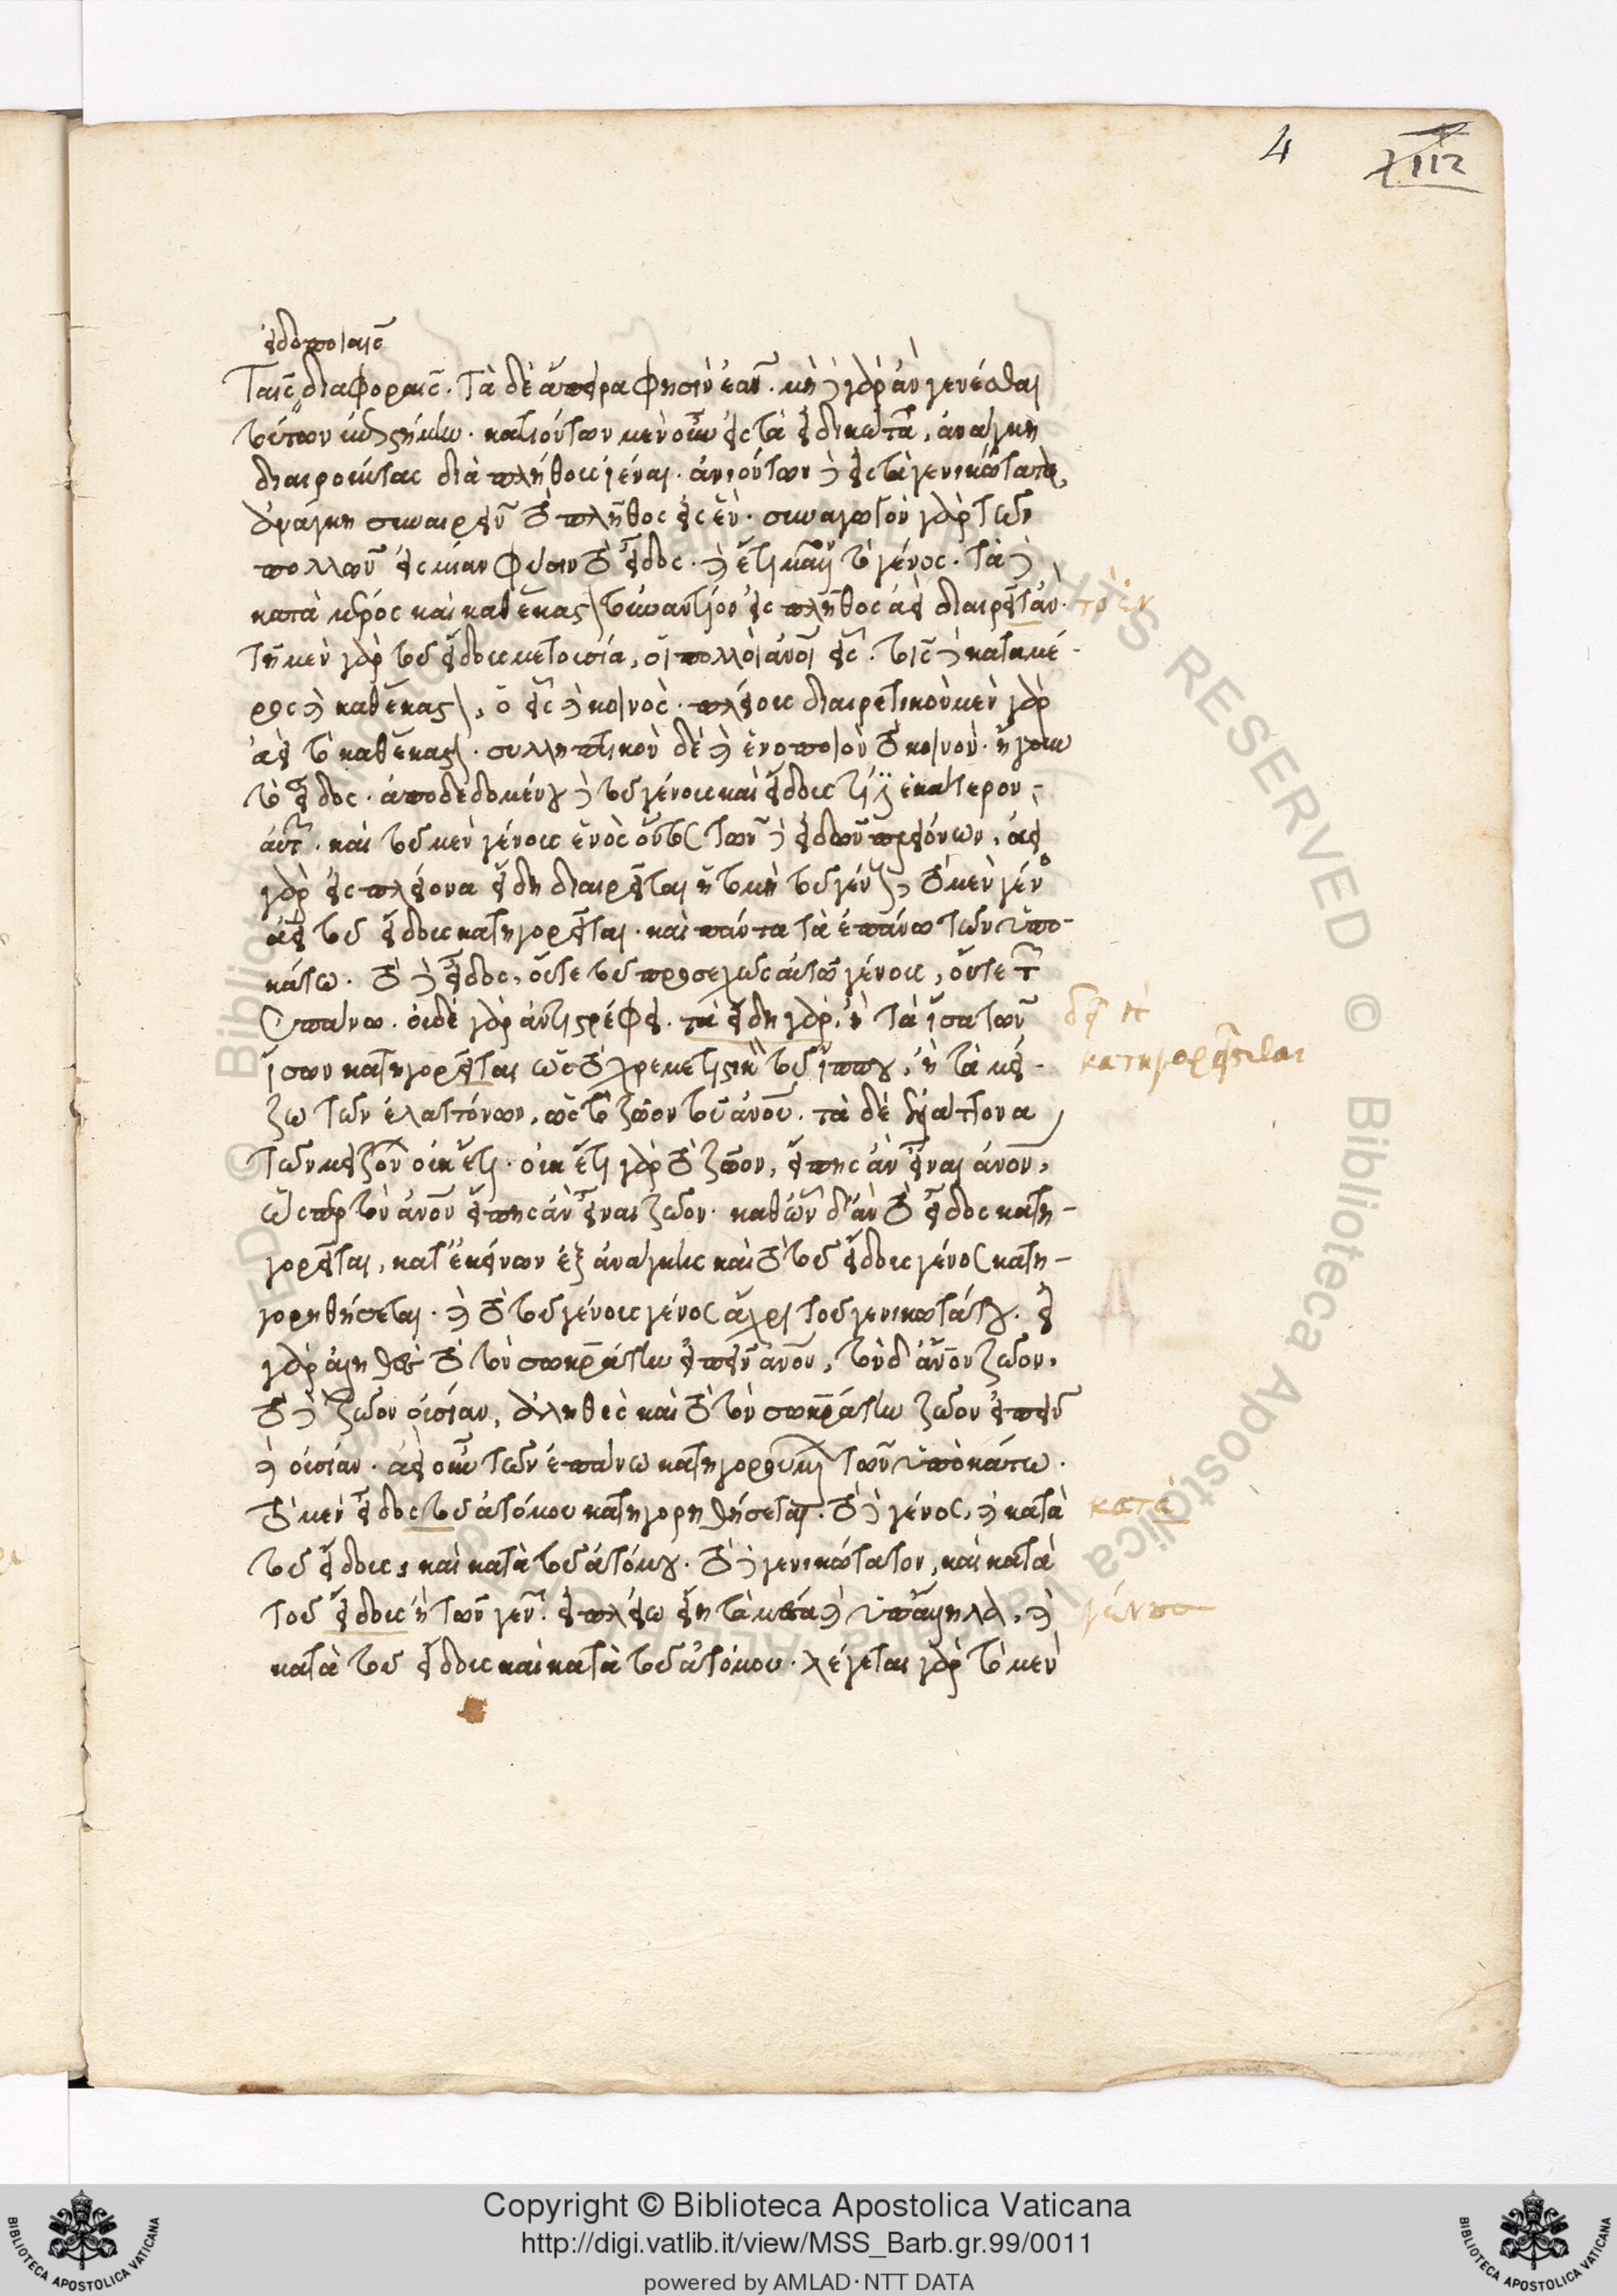 4
XIII
εἰδοποιοῖς
ταῖς διαφοραῖς. τὰ δὲ ἄπειρα φησὶν ἐᾶν. μὴ δὲ γὰρ ἂν γενέσθαι
τούτων ἐπιστήμην. κατιόντων μὲν οὖν εἰς τὰ εἰδικώτατα, ἀνάγκη
διαιροῦντας διὰ πλήθους ἰέναι. ἀνιόντων δὲ εἰς τὰ γενικώτατα,
ἀνάγκη συναιρεῖν τὸ πλῆθος εἰς ἕν. συναγωγὸν γὰρ τῶν
πολλῶν εἰς μίαν φύσιν τὸ εἶδος. καὶ ἔτι μᾶλλον τὸ γένος. τὰ δὲ
κατὰ μέρος καὶ καθέκαστα τοὐναντίον εἰς πλῆθος ἀεὶ διαιρεῖται τὸ ἕν
τῇ μὲν γὰρ τοῦ εἴδους μετουσίᾳ, οἱ πολλοὶ ἄνοι εἷς. τοῖς δὲ κατὰ μέ-
ρος καὶ καθέκαστα, ὁ εἷς καὶ κοινὸς πλείους διαιρετικὸν μὲν γὰρ
ἀεὶ τὸ καθέκαστον. συλληπτικὸν δὲ καὶ ἑνοποιὸν τὸ κοινόν. ἤγουν
τὸ εἶδος. ἀποδεδομένου δὲ τοῦ γένους καὶ εἴδους τί ἐστιν ἑκάτερον
αὐτῶν. καὶ τοῦ μὲν γένους ἑνὸς ὄντος τῶν δὲ εἰδῶν πλειόνων, ἀεὶ
γὰρ εἰς πλείονα εἴδη διαιρεῖται ἡ τομὴ τοῦ γένους, τὸ μὲν γένος
ἀεὶ τοῦ εἴδους κατηγορεῖται. καὶ πάντα τὰ ἐπάνω τῶν ὑπο-
κάτω. τὸ δὲ εἶδος, οὔτε τοῦ προσεχῶς αὐτοῦ γένους, οὔτε τῶν
ἐπάνω. οὐδὲ γὰρ ἀντιστρέφει. τὰ εἴδη γὰρ ἢ τὰ ἴσα τῶν δεῖ ἢ
ἴσων κατηγορεῖται ὡς τὸ χρεμετιστικὸν τοῦ ἵππου, ἢ τὰ μεί- κατηγορεῖσθαι
ζω τῶν ἐλαττόνων, ὡς τὸ ζῶον τοῦ ἀνου. τὰ δὲ ἐλάττονα
τῶν μειζόνων οὐκέτι. οὐκέτι γὰρ τὸ ζῶον, εἴποις ἂν εἶναι ἄνον,
ὥσπερ τὸν ἄνον εἴποις ἂν εἶναι ζῶον. καθ' ὧν δ' ἂν τὸ εἶδος κατη-
γορεῖται, κατ' ἐκείνων ἐξ ἀνάγκης καὶ τὸ τοῦ εἴδους γένος κατη-
γορηθήσεται. καὶ τὸ τοῦ γένους γένος ἄχρι τοῦ γενικωτάτου. εἰ
γὰρ ἀληθὲς τὸ τὸν σωκράτην εἰπεῖν ἄνον, τὸν δ' ἄνον ζῶον,
τὸ δὲ ζῶον οὐσίαν, ἀληθὲς καὶ τὸ τὸν σωκράτην ζῶον εἰπεῖν
καὶ οὐσίαν. ἀεὶ οὖν τῶν ἐπάνω κατηγορουμένων τῶν ὑποκάτω.
τὸ μὲν εἶδος τοῦ ἀτόμου κατηγορηθήσεται. τὸ δὲ γένος, καὶ κατὰ κατά
τοῦ εἴδους καὶ κατὰ τοῦ ἀτόμου. τὸ δὲ γενικώτατον, καὶ κατὰ
τοῦ εἴδους ἢ τῶν γενῶν. εἰ πλείω εἴη τὰ μεταξὺ καὶ ὑπάλληλα, καὶ
κατὰ τοῦ εἴδους καὶ κατὰ τοῦ ἀτόμου. λέγεται γὰρ τὸ μὲν
Copyright © Biblioteca Apostolica Vaticana
http://digi.vatlib.it/view/MSS_Barb.gr.99/0011
powered by AMLAD · NTT DATA